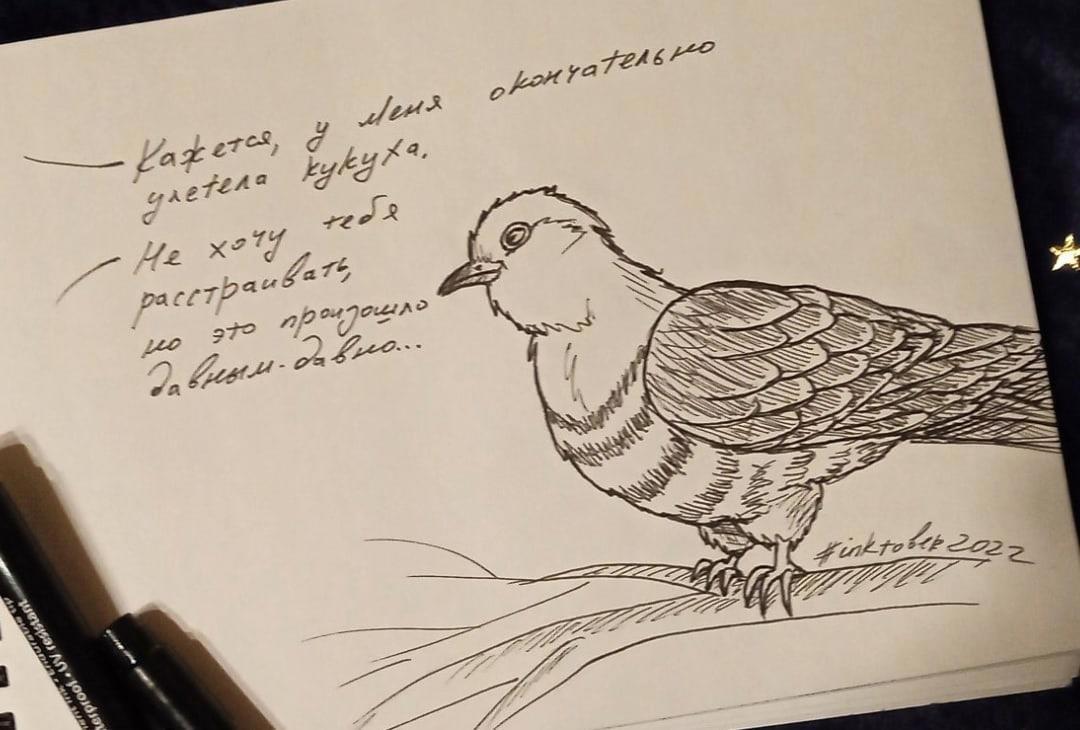 — Кажется, у меня окончательно
улетела кукуха.
— Не хочу тебя
расстраивать,
но это произошло
давным-давно...
#inktober2022
terproof • UV resistant